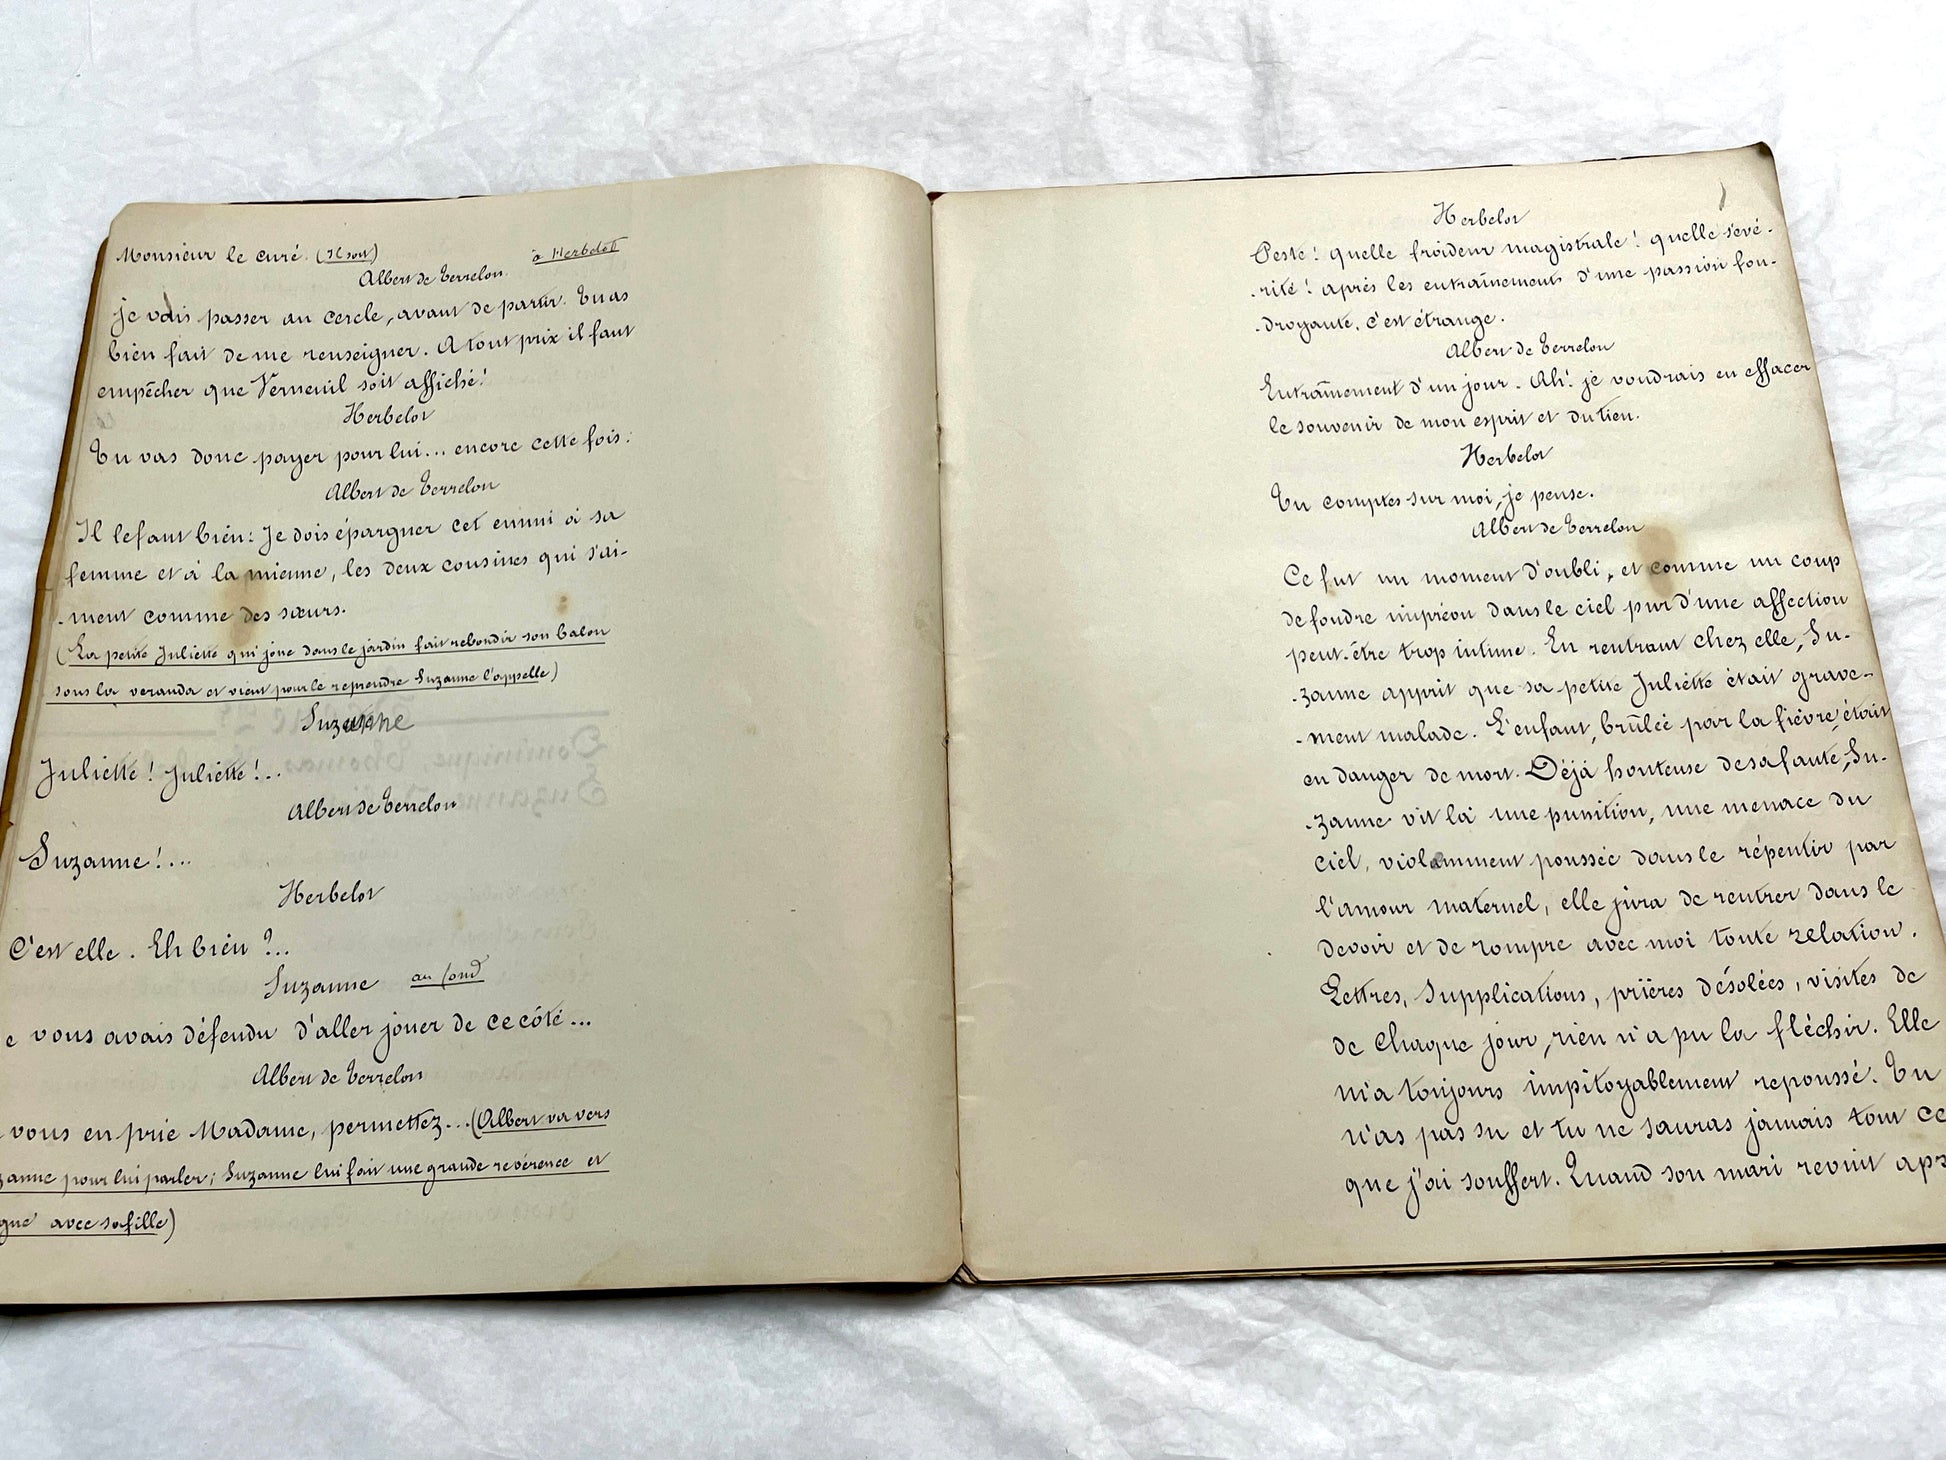 Monsieur le curé. (Il sort)
Albert de Terrelon. à Herbelot
je vais passer au cercle, avant de partir. Tu as
bien fait de me renseigner. A tout prix il faut
empêcher que Verneuil soit affiché!
Herbelot
Tu vas donc payer pour lui... encore cette fois.
Albert de Terrelon
Il le faut bien: Je dois épargner cet ennui à sa
femme et à la mienne, les deux cousines qui s'ai-
-ment comme des sœurs.
(La petite Juliette qui joue dans le jardin fait rebondir son balon
sous la veranda et vient pour le reprendre Suzanne l'appelle)
Suzanne
Juliette! Juliette!...
Albert de Terrelon
Suzanne!...
Herbelot
C'est elle. Eh bien?...
Suzanne au fond
e vous avais défendu d'aller jouer de ce côté...
Albert de Terrelon
vous en prie Madame, permettez...(Albert va vers
zanne pour lui parler; Suzanne lui fait une grande révérence et
gne avec sa fille)
Herbelot
Peste! quelle froideur magistrale! quelle sévé-
-rité! après les entraînements d'une passion fou-
-droyante, c'est étrange.
Albert de Terrelon
Entraînement d'un jour. Ah! je voudrais en effacer
le souvenir de mon esprit et du tien.
Herbelot
Tu comptes sur moi, je pense.
Albert de Terrelon
Ce fut un moment d'oubli, et comme un coup
de foudre imprévu dans le ciel pur d'une affection
peut-être trop intime. En rentrant chez elle, Su-
-zanne apprit que sa petite Juliette était grave-
-ment malade. L'enfant, brûlée par la fièvre, était
en danger de mort. Déjà honteuse de sa faute, Su-
-zanne vit là une punition, une menace du
ciel, violemment poussée dans le répentir par
l'amour maternel, elle jura de rentrer dans le
devoir et de rompre avec moi toute relation.
Lettres, supplications, prières désolées, visites de
de chaque jour, rien n'a pu la fléchir. Elle
m'a toujours impitoyablement repoussé. Tu
n'as pas su et tu ne sauras jamais tout ce
que j'ai souffert. Quand son mari revint apr